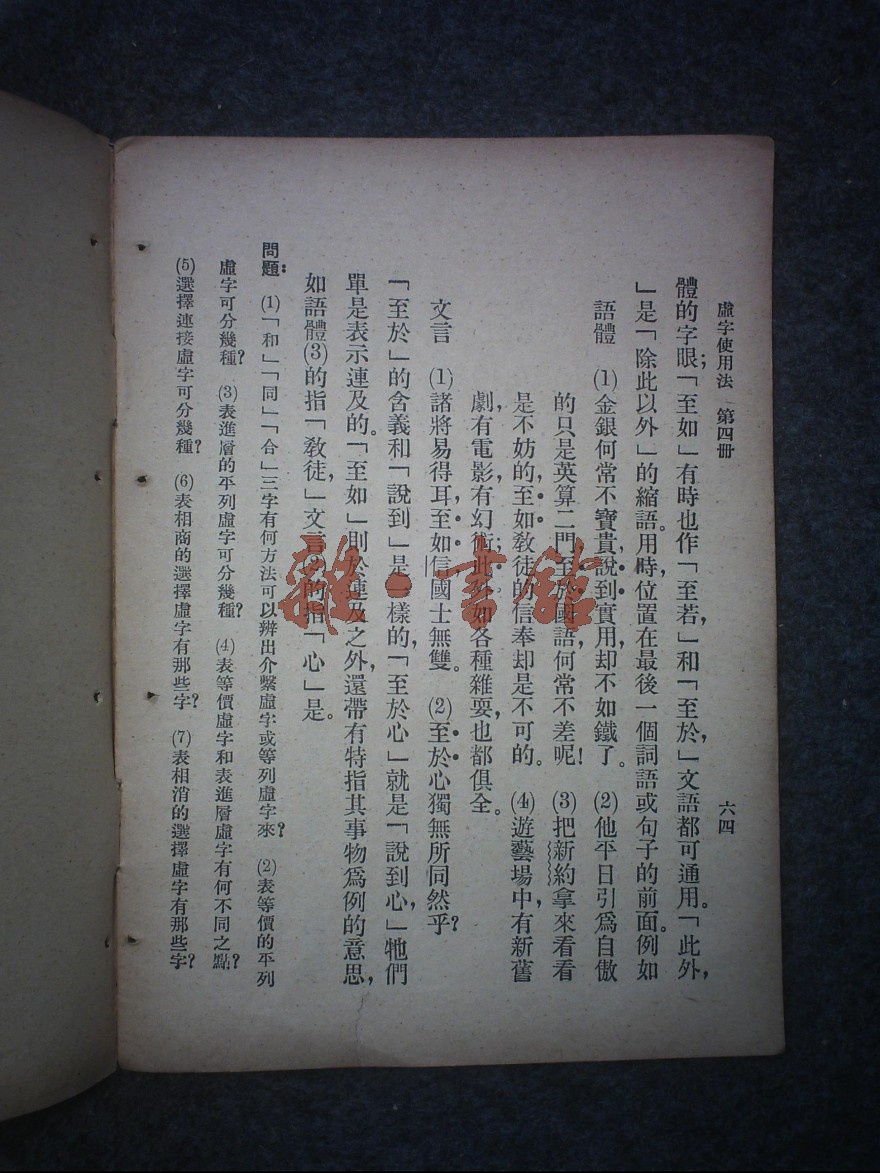 虛字使用法　第四冊　六四
體的字眼；「至如」有時也作「至若，」和「至於，」文語都可通用。「此外，
」是「除此以外」的縮語。用時，位置在最後一個詞語或句子的前面。例如
語體　(1)金銀何常不寶貴，說到實用，却不如鐵了。　(2)他平日引爲自傲
的只是英算二門；至於國語，何常不差呢！　(3)把新約拿來看看
是不妨的，至如教徒的信奉却是不可的。　(4)遊藝場中，有新舊
劇，有電影，有幻術；此外如各種雜耍，也都俱全。
文言　(1)諸將易得耳，至如信，國士無雙。　(2)至於心獨無所同然乎？
「至於」的含義和「說到」是一樣的，「至於心」就是「說到心，」牠們
單是表示連及的。「至如」則於連及之外，還帶有特指其事物爲例的意思，
如語體(3)的指「教徒，」文言(2)的指「心」是。
問題：　(1)「和」「同」「合」三字有何方法可以辨出介繫虛字或等列虛字來？　(2)表等價的平列
虛字可分幾種？　(3)表進層的平列虛字可分幾種？　(4)表等價虛字和表進層虛字有何不同之點？
(5)選擇連接虛字可分幾種？　(6)表相商的選擇虛字有那些字？　(7)表相消的選擇虛字有那些字？
雜·書館